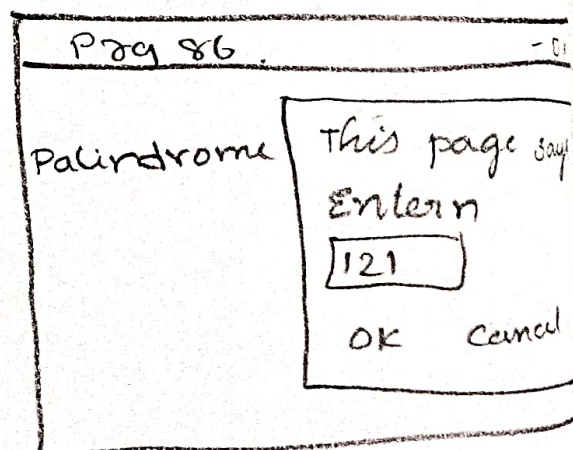 Prg 86.
Palindrome
This page says
Enter n
121
OK Cancel